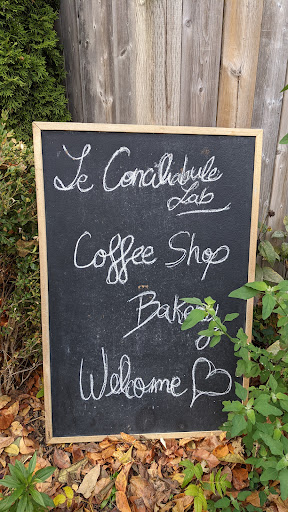 Le Conciliabule
Lab
Coffee Shop
Bakery
Welcome ♡